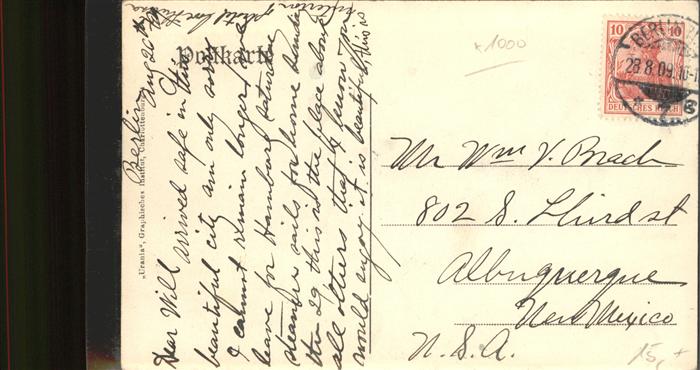 Postkarte
Berlin
Aug 26th 09
Dear Will arrived safe in this
beautiful city am only sorry
I cannot remain longer
leave for Hamburg Saturday
steamer sails for home Sunday
the 29 this is the place above
all others that I know you
would enjoy it is beautiful, this is
interior
„Urania“, Graphisches Institut, Charlottenburg
x 1000
10 10
DEUTSCHES REICH
BERLIN
28.8.09.
Mr Wm V. Brach
802 S. Third st
Albuquerque
New Mexico
U.S.A.
15,-